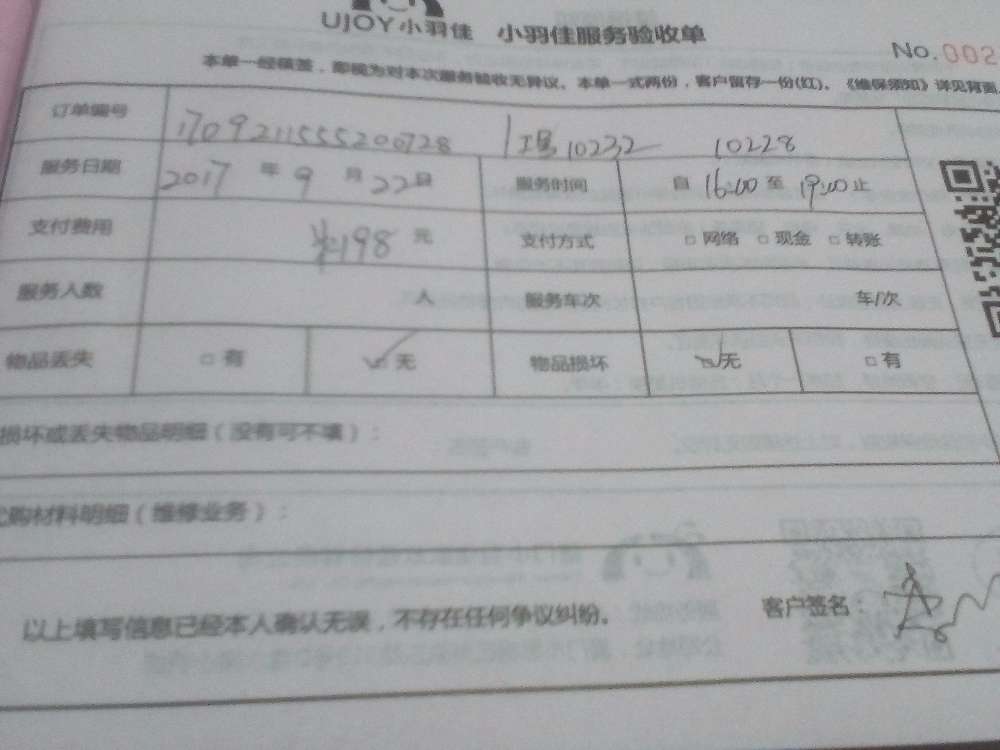 UJOY小羽佳 小羽佳服务验收单
No.002
本单一经领签，即视为对本次服务验收无异议。本单一式两份，客户留存一份(红)。《维保须知》详见背面。
订单编号 1709211555200728 工号10232 10228
服务日期 2017年9月22日 服务时间 自16:00至19:00止
支付费用 ¥198元 支付方式 □网络 □现金 □转账
服务人数 人 服务车次 车/次
物品丢失 □有 ☑无 物品损坏 ☑无 □有
损坏或丢失物品明细（没有可不填）：
代购材料明细（维修业务）：
以上填写信息已经本人确认无误，不存在任何争议纠纷。 客户签名：